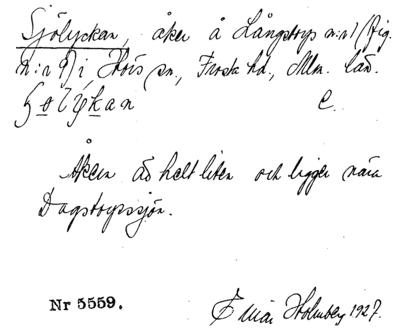 Sjölyckan, åker å Långstorp n:r 1 (fig.
n:r 9) i Höörs sn., Frosta hd., Mlm. län.
e.
Åkern är helt liten och ligger nära
Dagstorpssjön.
Nr 5559.
Einar Holmberg 1927.